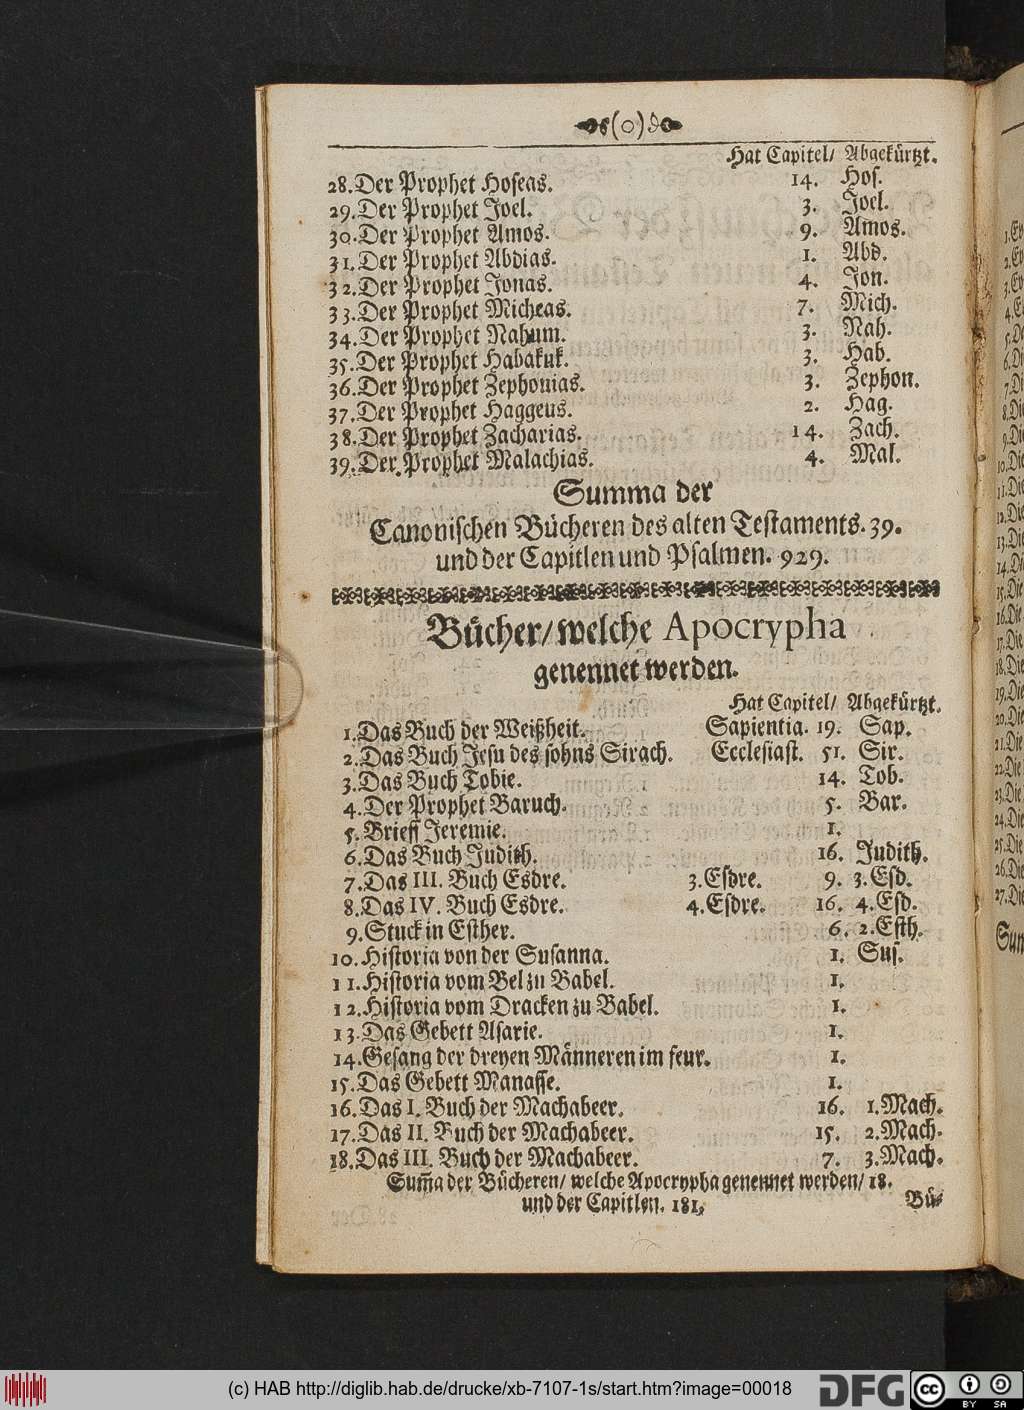 (o)
Hat Capitel/ Abgekürtzt.
28. Der Prophet Hoseas. 14. Hos.
29. Der Prophet Joel. 3. Joel.
30. Der Prophet Amos. 9. Amos.
31. Der Prophet Abdias. 1. Abd.
32. Der Prophet Jonas. 4. Jon.
33. Der Prophet Micheas. 7. Mich.
34. Der Prophet Nahum. 3. Nah.
35. Der Prophet Habakuk. 3. Hab.
36. Der Prophet Zephonias. 3. Zephon.
37. Der Prophet Haggeus. 2. Hag.
38. Der Prophet Zacharias. 14. Zach.
39. Der Prophet Malachias. 4. Mal.
Summa der
Canonischen Bücheren des alten Testaments. 39.
und der Capitlen und Psalmen. 929.
Bücher/ welche Apocrypha
genennet werden.
Hat Capitel/ Abgekürtzt.
1. Das Buch der Weißheit. Sapientia. 19. Sap.
2. Das Buch Jesu des sohns Sirach. Ecclesiast. 51. Sir.
3. Das Buch Tobie. 14. Tob.
4. Der Prophet Baruch. 5. Bar.
5. Brieff Jeremie. 1.
6. Das Buch Judith. 16. Judith.
7. Das III. Buch Esdre. 3. Esdre. 9. 3. Esd.
8. Das IV. Buch Esdre. 4. Esdre. 16. 4. Esd.
9. Stuck in Esther. 6. 2. Esth.
10. Historia von der Susanna. 1. Sus.
11. Historia vom Bel zu Babel. 1.
12. Historia vom Dracken zu Babel. 1.
13. Das Gebett Asarie. 1.
14. Gesang der dreyen Männeren im feur. 1.
15. Das Gebett Manasse. 1.
16. Das I. Buch der Machabeer. 16. 1. Mach.
17. Das II. Buch der Machabeer. 15. 2. Mach.
18. Das III. Buch der Machabeer. 7. 3. Mach.
Sum̃a der Bücheren/ welche Apocrypha genennet werden/ 18.
und der Capitlen. 181.
Bü-
(c) HAB http://diglib.hab.de/drucke/xb-7107-1s/start.htm?image=00018
DFG
cc BY SA